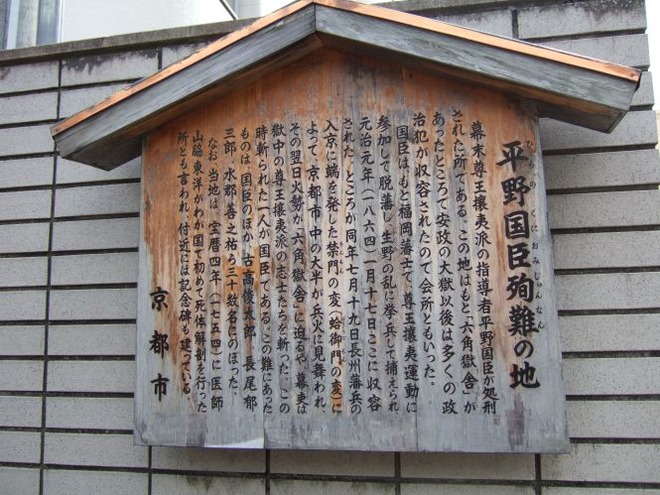 平野国臣殉難の地
ひらの くにおみ じゅんなん
幕末尊王攘夷派の指導者平野国臣が処刑
された所である。この地はもと「六角獄舎」が
あったところで安政の大獄以後は多くの政
治犯が収容されたので会所ともいった。
国臣は、もと福岡藩士で、尊王攘夷運動に
参加して脱藩し、生野の乱に挙兵して捕えられ
元治元年(一八六四)一月十七日ここに収容
された。ところが同年七月十九日長州藩兵の
入京に端を発した禁門の変(蛤御門の変)に
よって、京都市中の大半が兵火に見舞われ、
その翌日火勢が「六角獄舎」に迫るや、幕吏は
獄中の尊王攘夷派の志士たちを斬った。この
時斬られた一人が国臣である。この難にあった
ものは、国臣のほか、古高俊太郎、長尾郁
三郎、水郡善之祐ら三十数名にのぼった。
なお、当地は、宝暦四年(一七五四)に医師
山脇東洋がわが国で初めて死体解剖を行った
所とも言われ、付近には記念碑も建っている
京都市